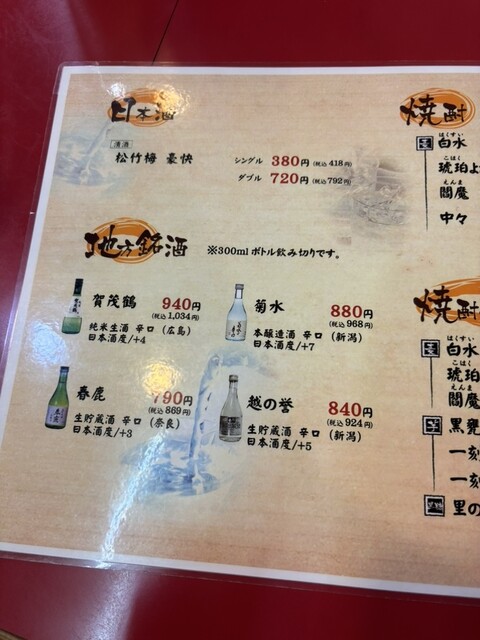 日本酒
清酒
松竹梅 豪快
シングル 380円(税込418円)
ダブル 720円(税込792円)
地方銘酒 ※300mlボトル飲み切りです。
賀茂鶴 940円
(税込1,034円)
純米生酒 辛口 (広島)
日本酒度/+4
菊水 880円
(税込968円)
本醸造酒 辛口 (新潟)
日本酒度/+7
春鹿 790円
(税込869円)
生貯蔵酒 辛口 (奈良)
日本酒度/+3
越の誉 840円
(税込924円)
生貯蔵酒 辛口 (新潟)
日本酒度/+5
焼酎
はくすい
麦 白水
こはく
琥珀よ
えんま
閻魔
中々
焼酎
はくすい
麦 白水
こはく
琥珀
えんま
閻魔
芋 黒甕
一刻
一刻
里の